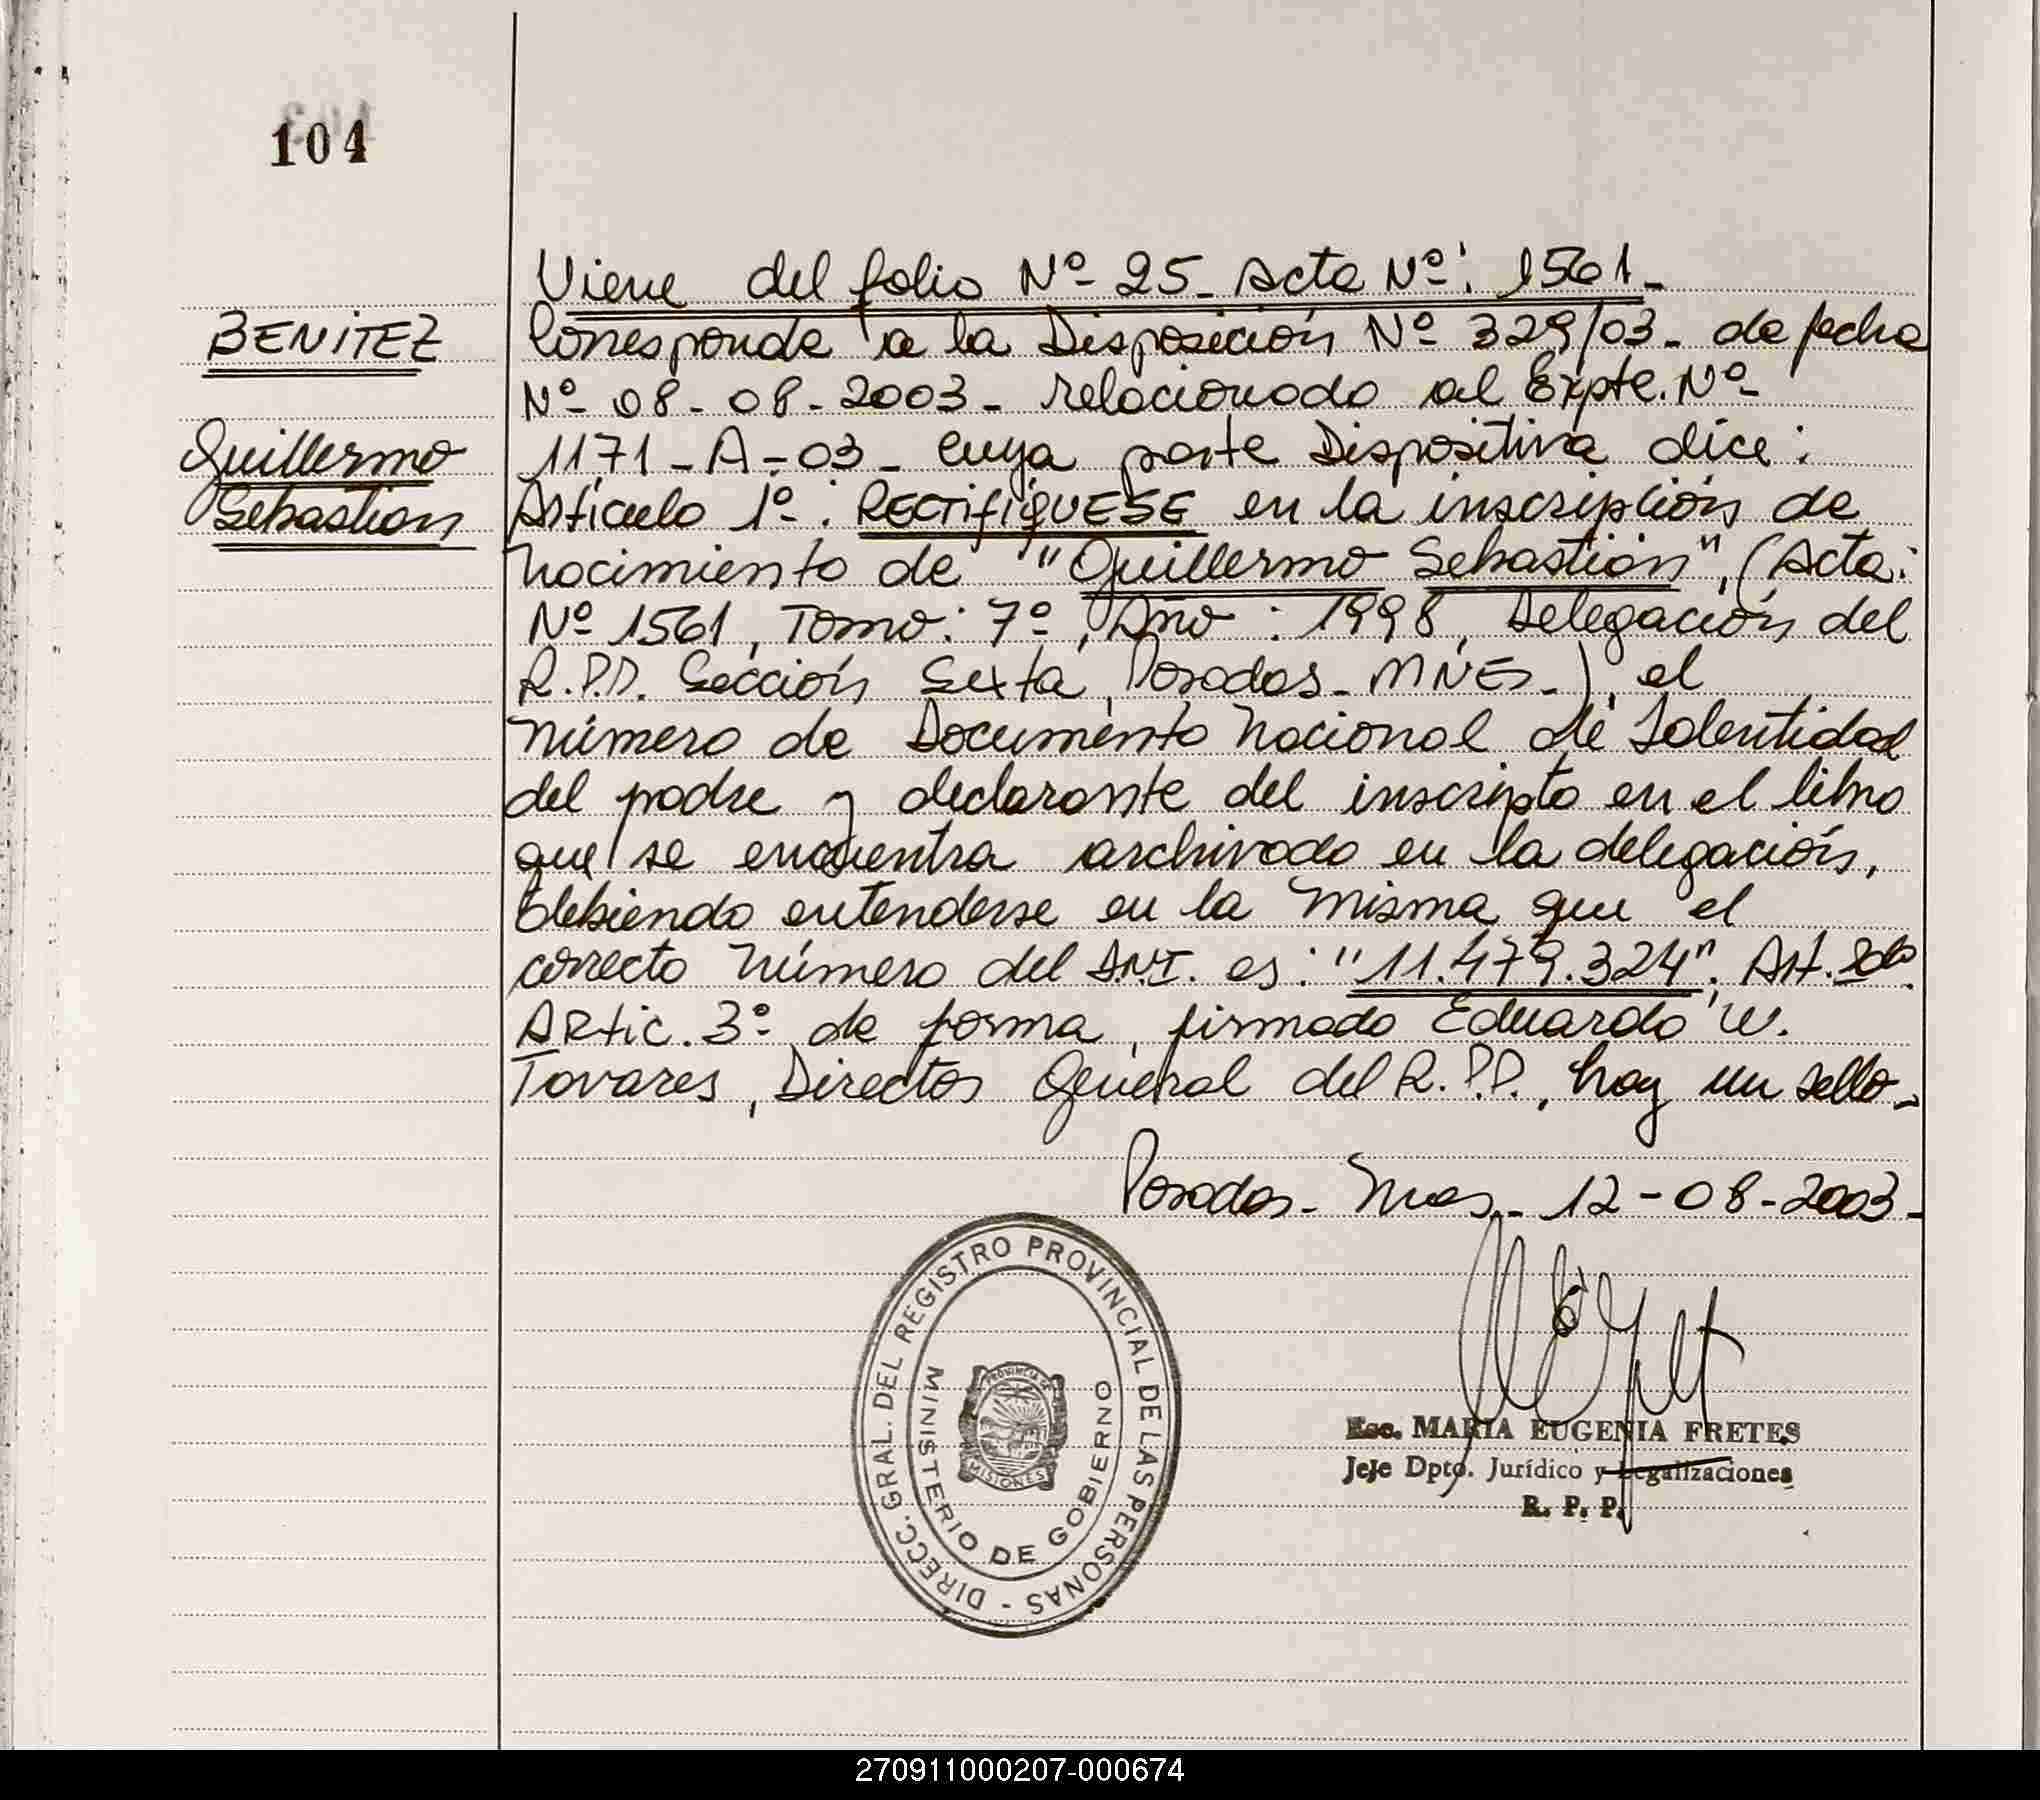 104
BENITEZ
Guillermo
Sebastian
Viene del folio Nº 25 - Acta Nº: 1561 -
Corresponde a la Disposición Nº 329/03 - de fecha
Nº 08 - 08 - 2003 - relacionado al Expte. Nº
1171 - A - 03 - cuya parte Dispositiva dice:
Artículo 1º: RECTIFIQUESE en la inscripción de
nacimiento de "Guillermo Sebastián", (Acta:
Nº 1561, Tomo: 7º, Año: 1998, Delegación del
R.P.P. Sección Sexta, Posadas - MNES -), el
número de Documento Nacional de Identidad
del padre y declarante del inscripto en el libro
que se encuentra archivado en la delegación,
debiendo entenderse en la misma que el
correcto número del D.N.I. es: "11.479.324". Art.
ARtic. 3º de forma, firmado Eduardo W.
Tovares, Director General del R.P.P., hay un sello -
Posadas - Mnes - 12 - 08 - 2003 -
DIRECC. GRAL. DEL REGISTRO PROVINCIAL DE LAS PERSONAS -
MINISTERIO DE GOBIERNO
PROVINCIA DE
MISIONES
Esc. MARIA EUGENIA FRETES
Jefe Dpto. Jurídico y Legalizaciones
R. P. P.
270911000207-000674